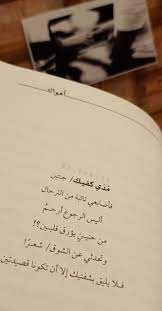 أهواك
مُدّي كفيك/ جنتين
فأصابعي تائبة من الترحال
أليس الرجوع أرحمُ
من حنينٍ يؤرق قلبين؟!
وتحدثي عن الشوق/ شعرًا
فلا يليق بشفتيك إلا أن تكونا قصيدتين